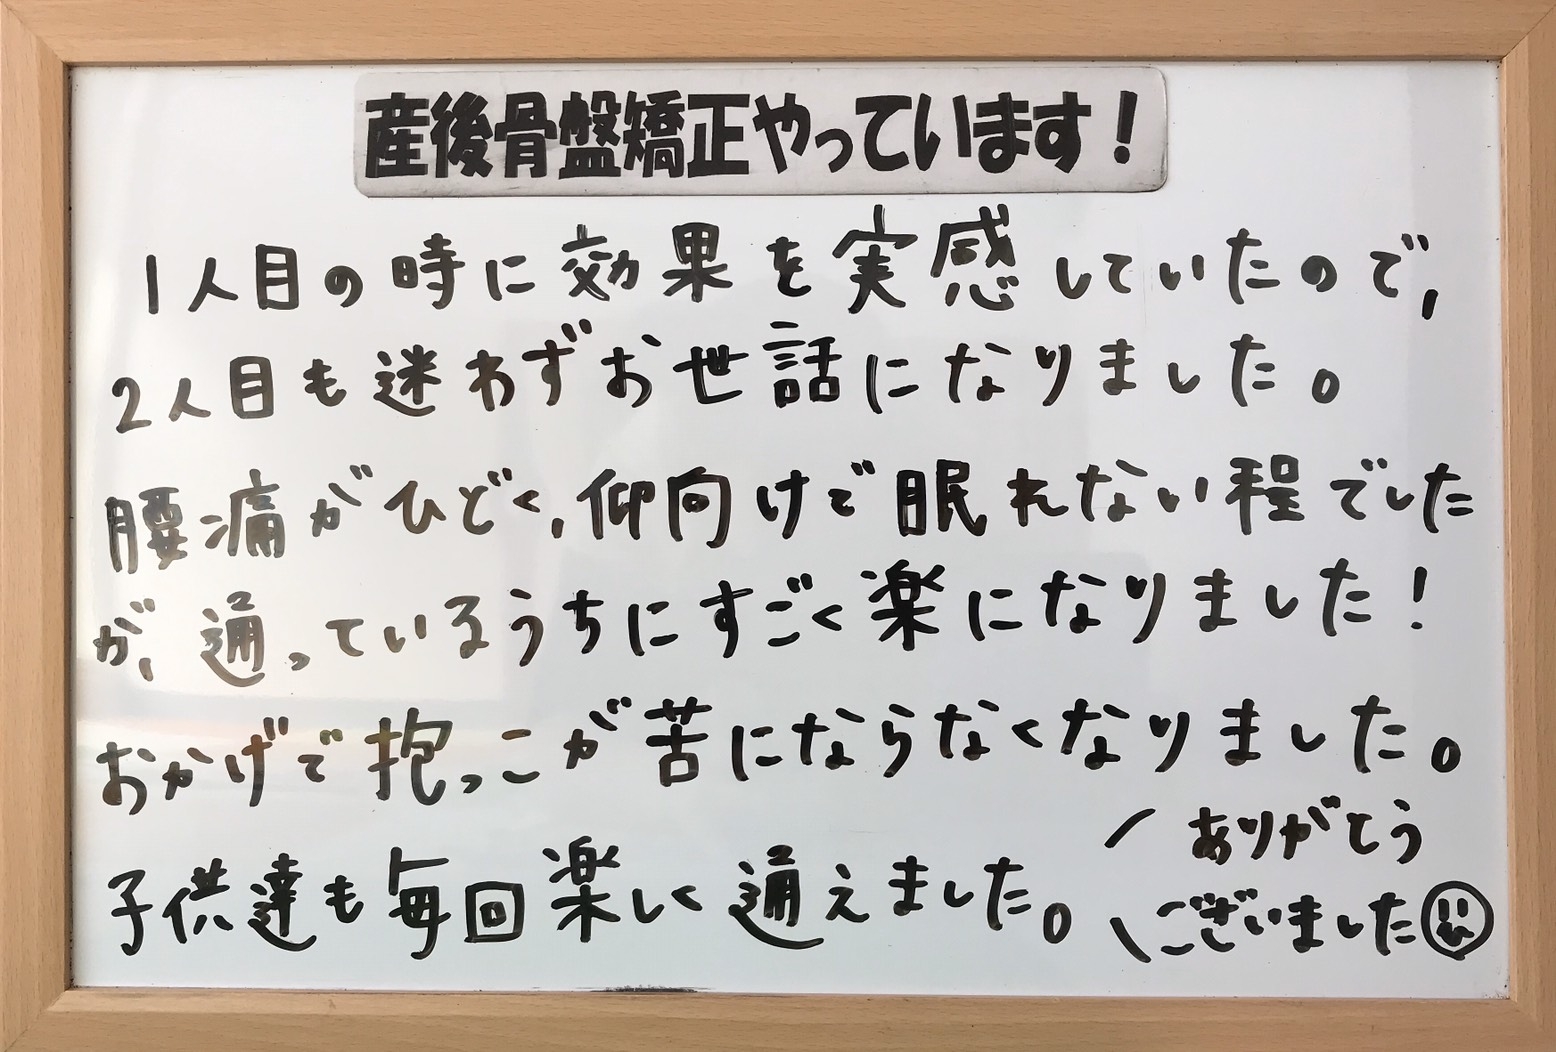 産後骨盤矯正やっています！
1人目の時に効果を実感していたので,
2人目も迷わずお世話になりました。
腰痛がひどく,仰向けで眠れない程でした
が,通っているうちにすごく楽になりました！
おかげで抱っこが苦にならなくなりました。
子供達も毎回楽しく通えました。
ありがとう
ございました